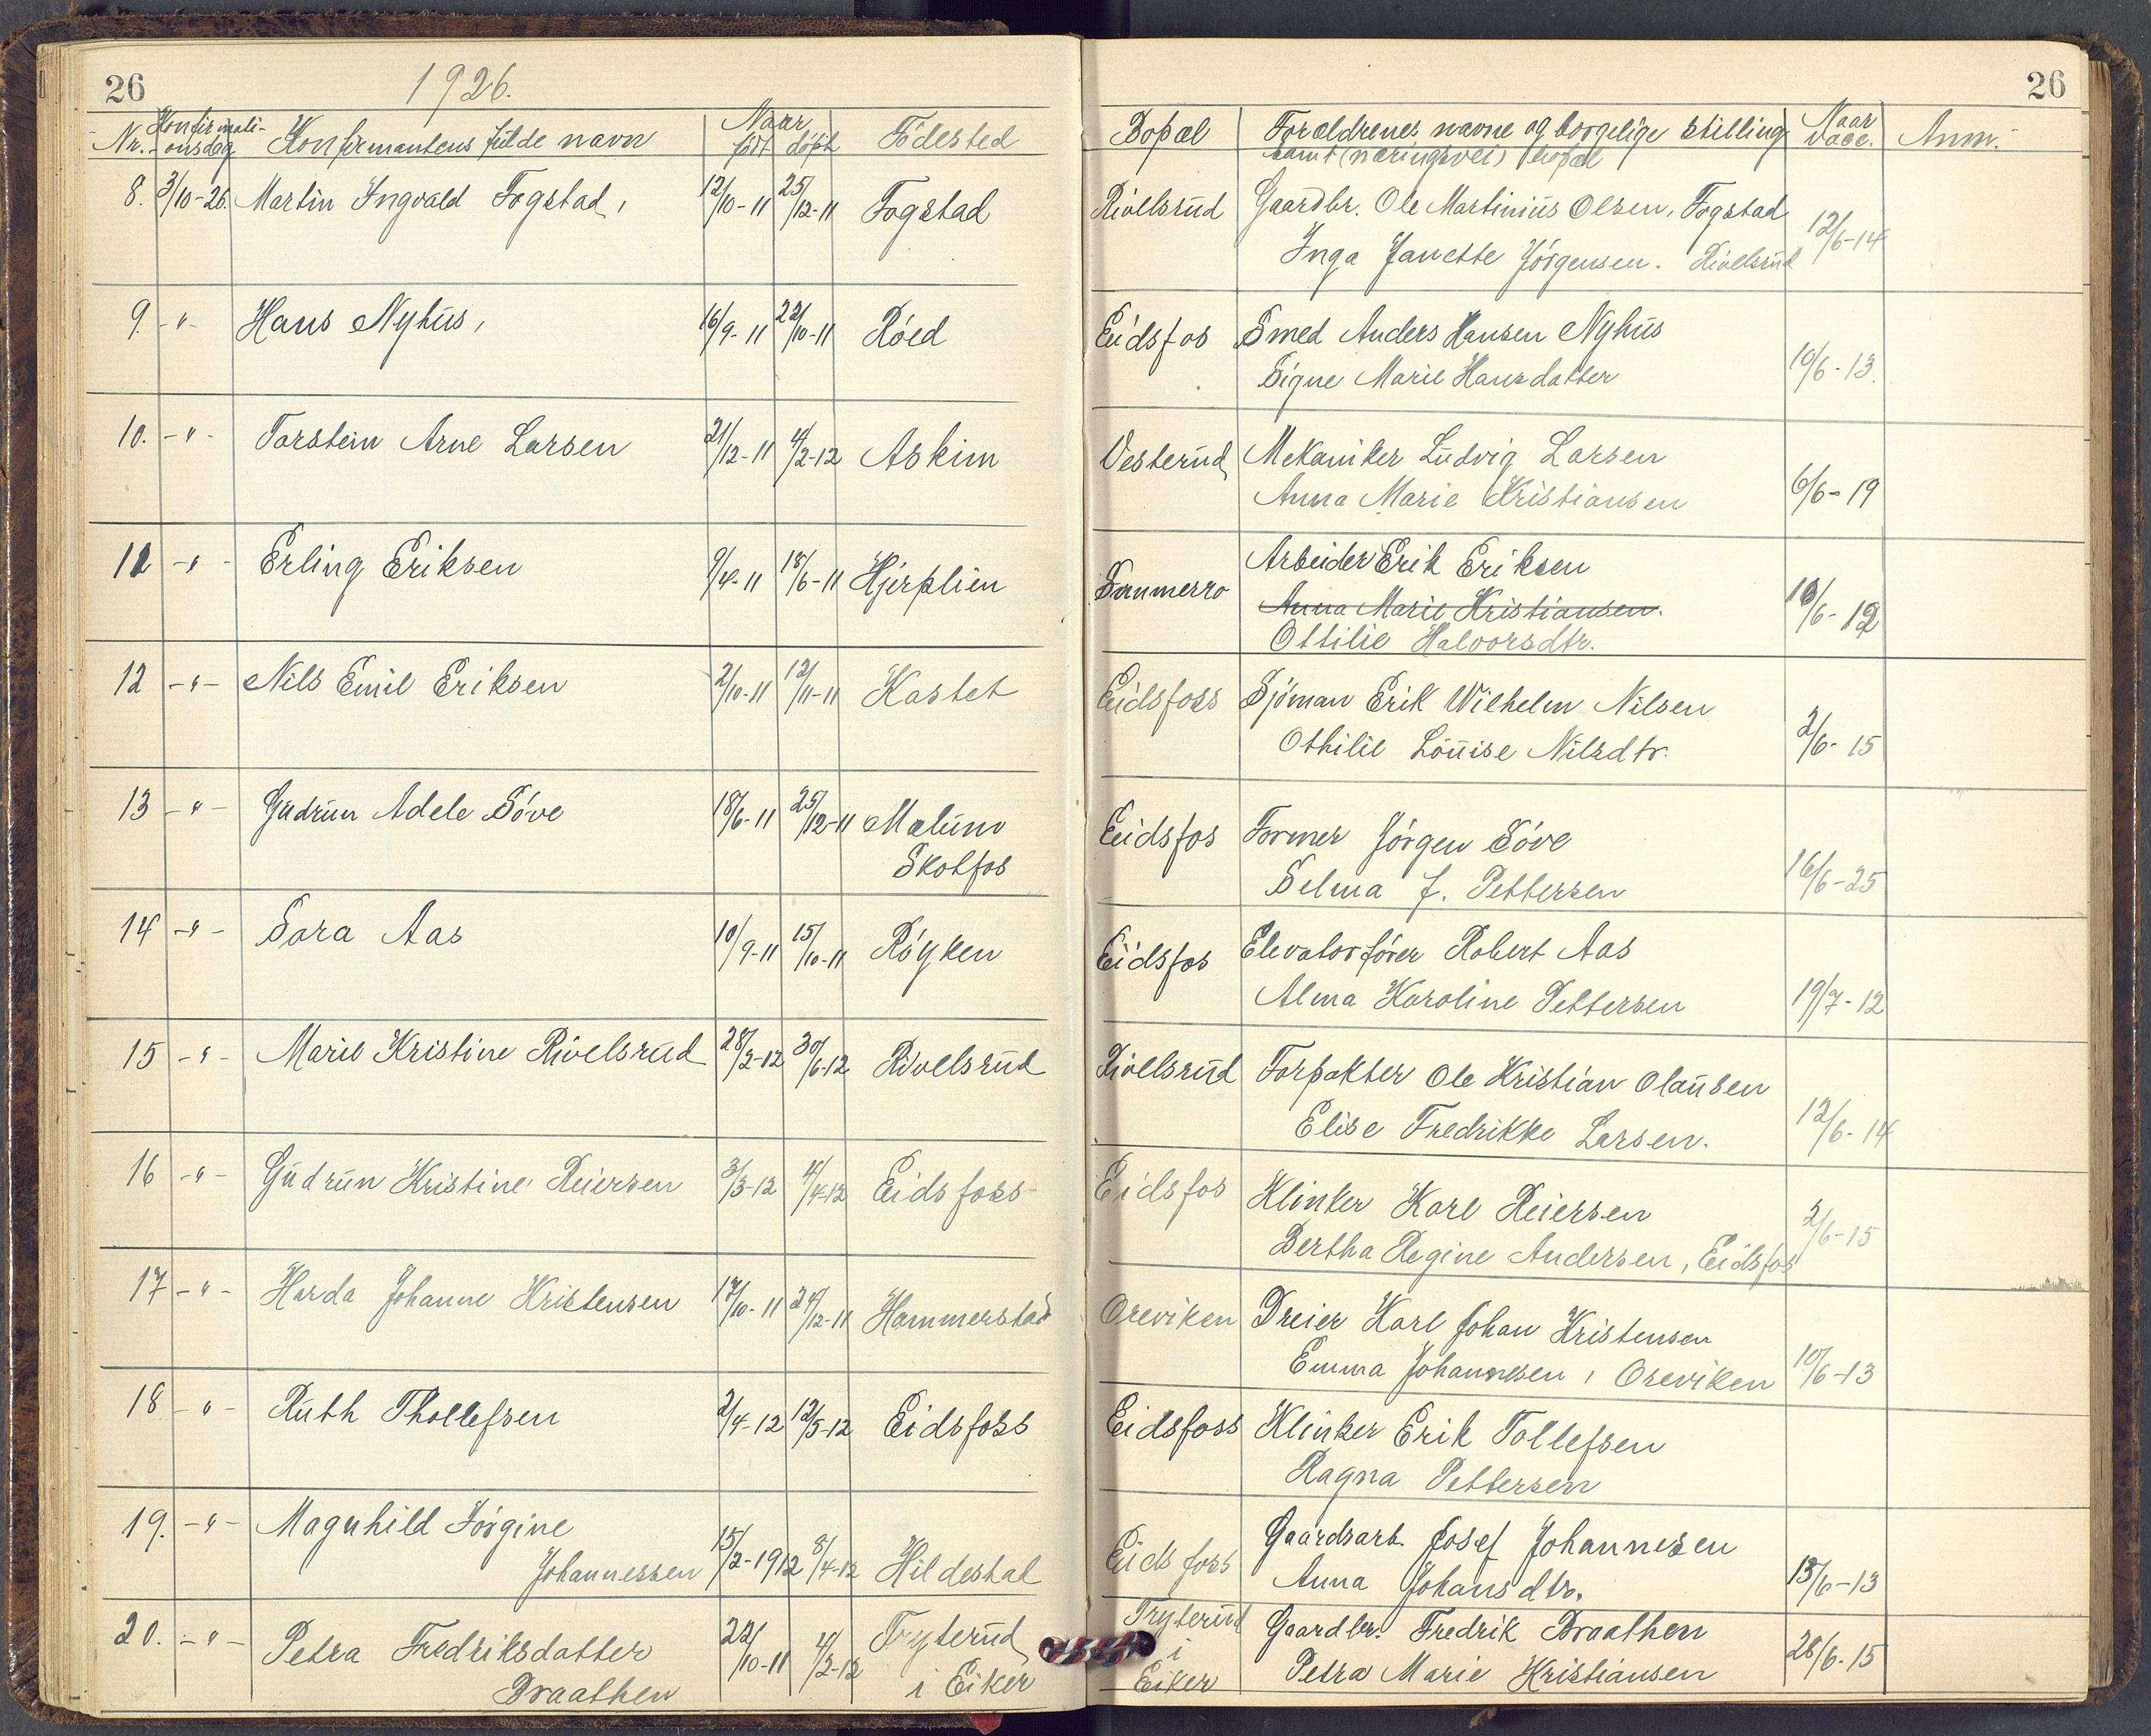 26
1926.
Nr. Konfirmati-onsdag Konfirmantens fulde navn Naar født døpt Födested
8. 3/10-26. Martin Ingvald Fogstad, 12/10-11 25/12-11 Fogstad
9. -"- Hans Nyhus, 16/9-11 22/10-11 Röed
10. -"- Torstein Arne Larsen 21/12-11 4/2-12 Askim
11 -"- Erling Eriksen 9/4-11 18/6-11 Hjerplien
12 -"- Nils Emil Eriksen 2/10-11 12/11-11 Kastet
13 -"- Gudrun Adele Söve 18/6-11 25/12-11 Melum
Skotfos
14 -"- Sara Aas 10/9-11 15/10-11 Röyken
15 -"- Marie Kristine Rivelsrud 28/2-12 30/6-12 Rivelsrud
16 -"- Gudrun Kristine Reiersen 3/3-12 4/4-12 Eidsfoss
17 -"- Harda Johanne Kristensen 17/10-11 24/12-11 Hammerstad
18 -"- Ruth Thollefsen 2/4-12 12/5-12 Eidsfoss
19. -"- Magnhild Jörgine
Johannessen 15/2-1912 8/4-12 Hildestal
20. -"- Petra Fredriksdatter 22/10-11 4/2-12 Tryterud
Braathen i Eiker
26
Bopæl Forældrenes navne og borgelige stilling Naar vacc. Anm.
samt (næringsvei) bopæl
Rivelsrud Gaardbr. Ole Martinius Olsen, Fogstad
Inga Janette Jörgensen. Rivelsrud 12/6-14
Eidsfos Smed Anders Hansen Nyhus
Signe Marie Hansdatter 10/6-13.
Vesterud Mekaniker Ludvig Larsen
Anna Marie Kristiansen 6/6-19
Arbeider Erik Eriksen
Sommerro Anna Marie Kristiansen. /6-12
Ottilie Halvorsdtr.
Eidsfoss Sjöman Erik Wilhelm Nilsen
Othilie Louise Nilsdtr. 2/6-15
Eidsfos Former Jörgen Söve
Selma J. Pettersen 16/6-25
Eidsfos Elevatorförer Robert Aas
Alma Karoline Pettersen 19/7-12
Rivelsrud Forpakter Ole Kristian Olausen
Elise Fredrikke Larsen. 12/6-14
Eidsfos Klinker Karl Reiersen
Bertha Regine Andersen, Eidsfos 2/6-15
Oreviken Dreier Karl Johan Kristensen
Emma Johannesen, Oreviken 10/6-13
Eidsfoss Klinker Erik Tollefsen
Ragna Pettersen
Gaardsarb. Josef Johannesen
Eidsfoss Anna Johansdtr. 13/6-13
Tryterud Gaardbr. Fredrik Braathen
i
Eiker Petra Marie Kristiansen 28/6-15